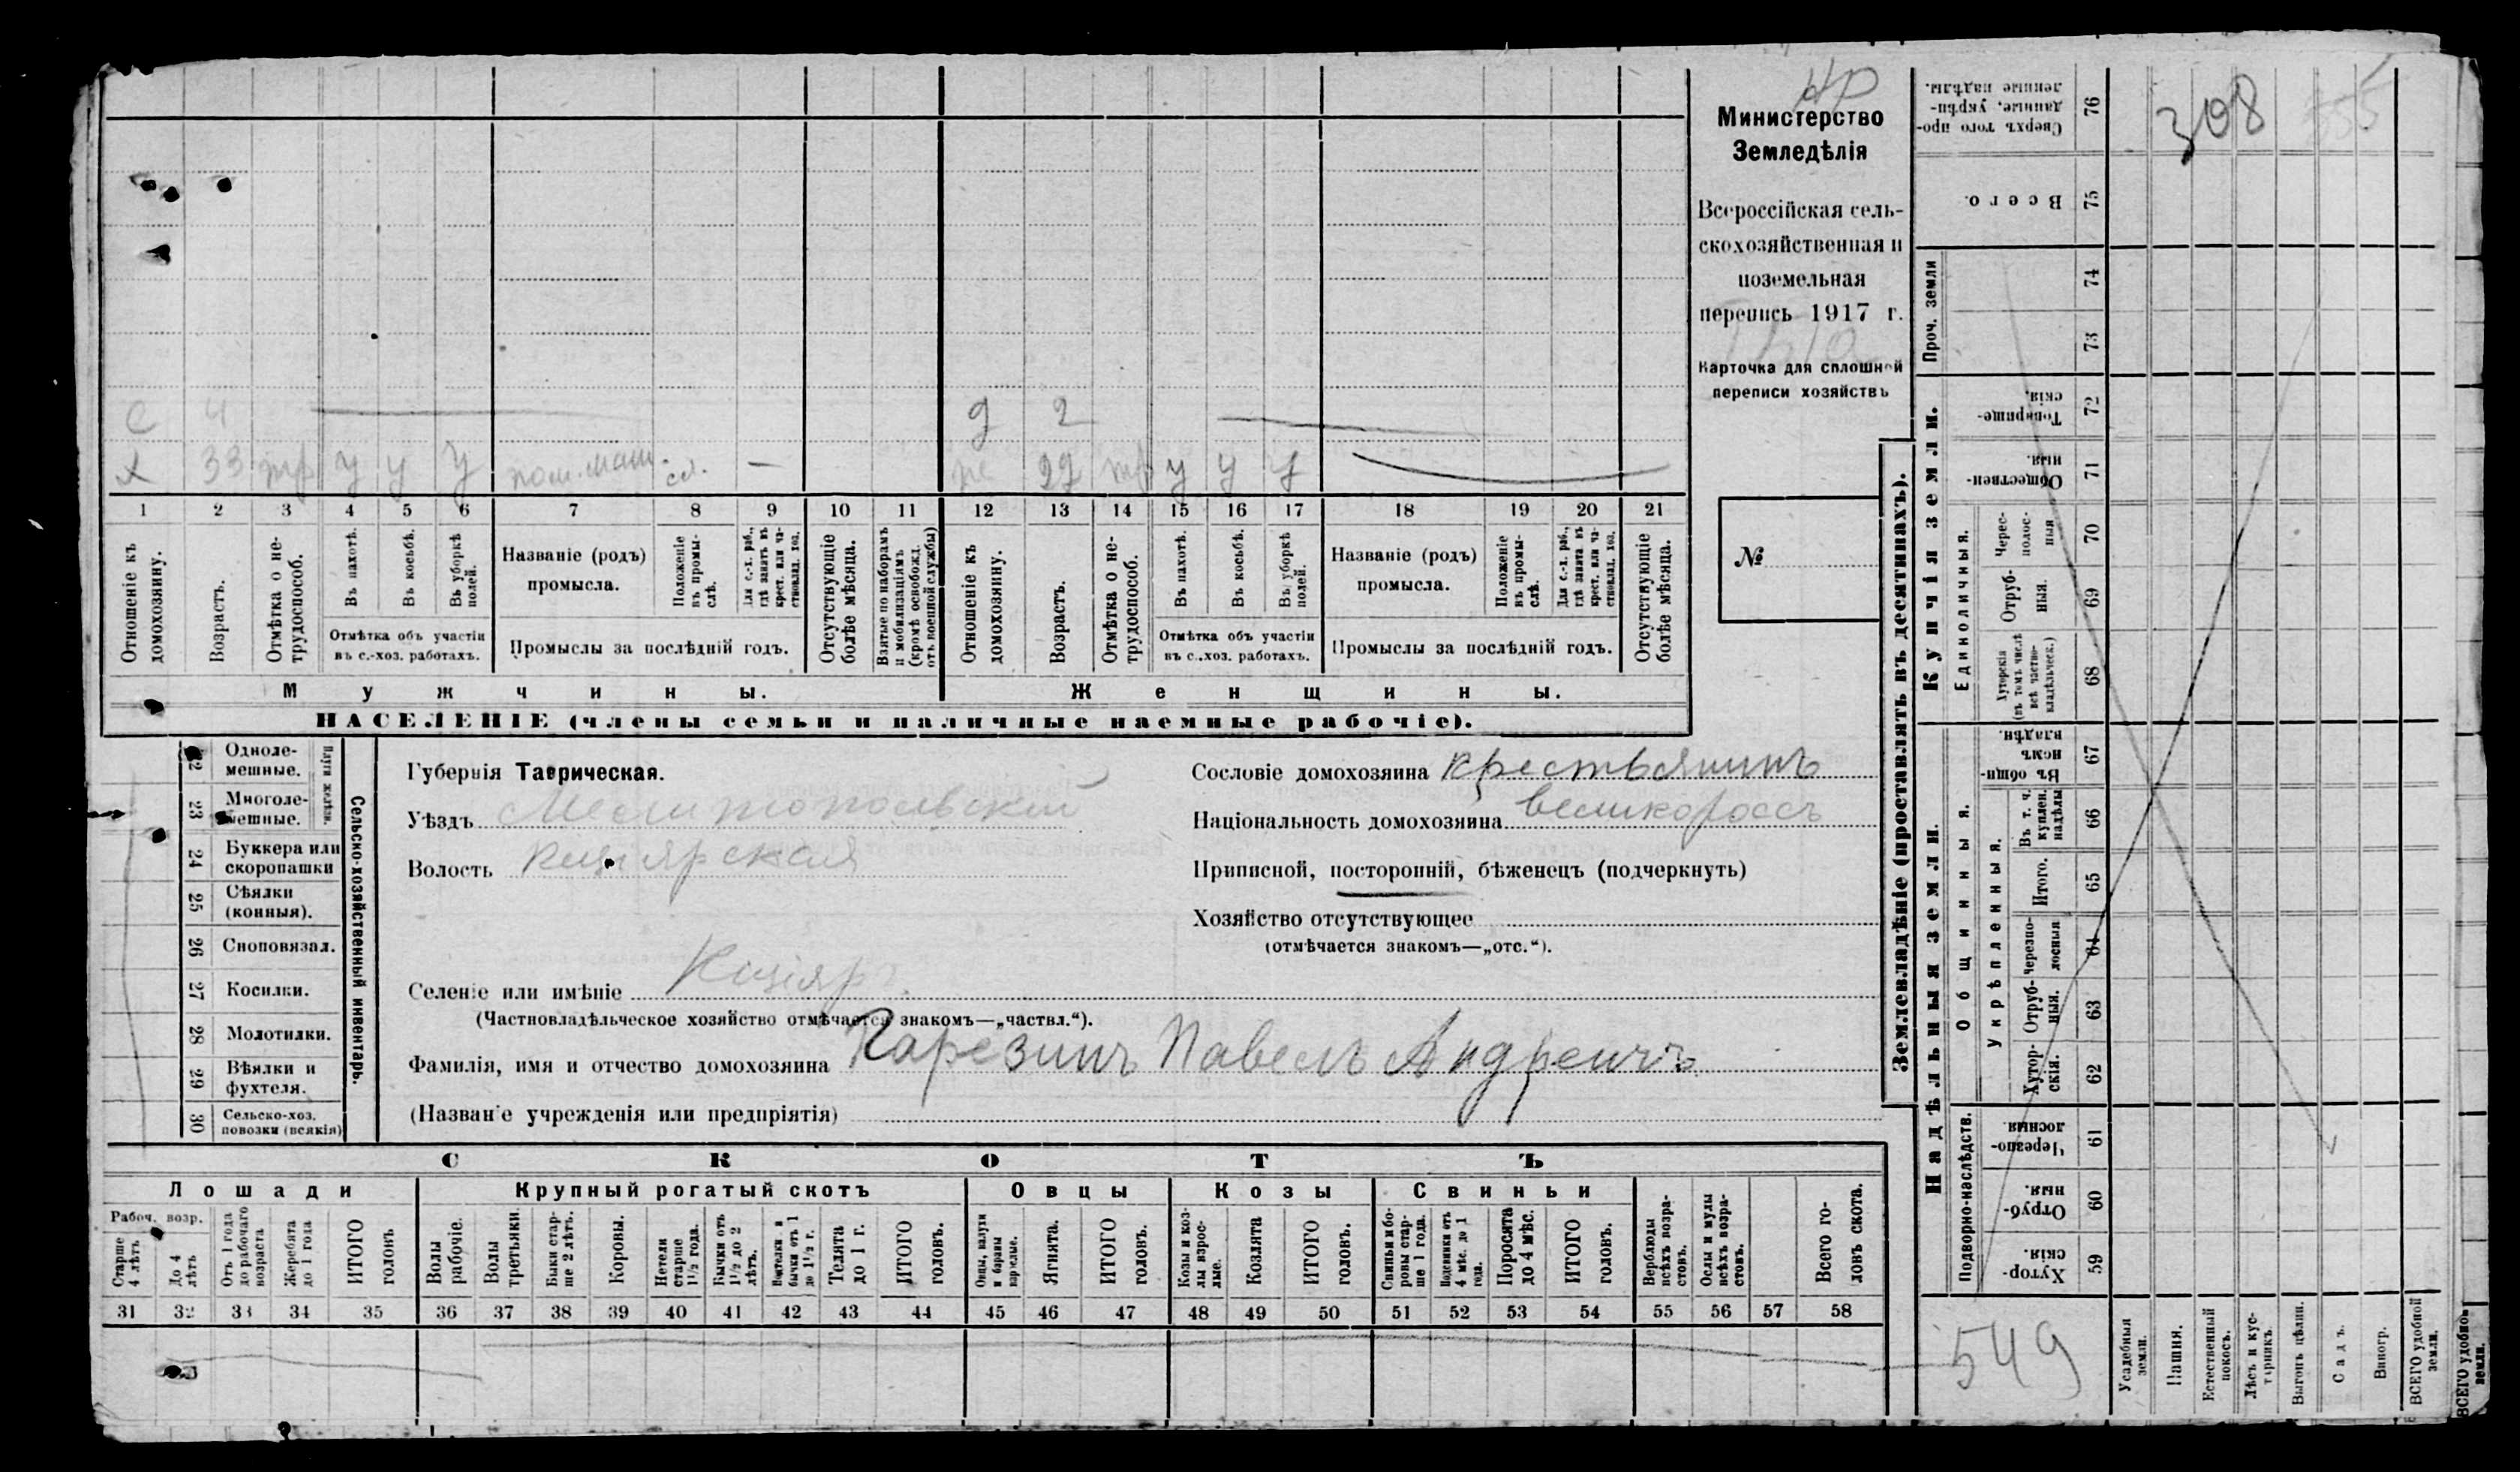 НР
Министерство
Земледѣлія
Всероссійская сель-
скохозяйственная и
поземельная
перепись 1917 г.
Карточка для сплошной
переписи хозяйствъ
№
С 4 д 2
х 33 тр у у у пом. маш. сл. — же 22 тр у у у
1 2 3 4 5 6 7 8 9 10 11 12 13 14 15 16 17 18 19 20 21
Отношеніе къ домохозяину.
Возрастъ.
Отмѣтка о не-трудоспособ.
Въ пахотѣ.
Въ косьбѣ.
Въ уборкѣ полей.
Отмѣтка объ участіи
въ с.-хоз. работахъ.
Названіе (родъ)
промысла.
Положеніе въ промы-слѣ.
Для с.-х. раб., гдѣ занятъ въ крест. или ча-стновлад. хоз.
Промыслы за послѣдній годъ.
Отсутствующіе болѣе мѣсяца.
Взятые по наборамъ и мобилизаціямъ (кромѣ освобожд. отъ военной службы)
Отношеніе къ домохозяину.
Возрастъ.
Отмѣтка о не-трудоспособ.
Въ пахотѣ.
Въ косьбѣ.
Въ уборкѣ полей.
Отмѣтка объ участіи
въ с.-хоз. работахъ.
Названіе (родъ)
промысла.
Положеніе въ промы-слѣ.
Для с.-х. раб., гдѣ занята въ крест. или ча-стновлад. хоз.
Промыслы за послѣдній годъ.
Отсутствующіе болѣе мѣсяца.
Мужчины.
Женщины.
НАСЕЛЕНІЕ (члены семьи и наличные наемные рабочіе).
22 Одноле-мешные.
23 Многоле-мешные.
Плуги желѣзн.
24 Буккера или скоропашки
25 Сѣялки (конныя).
26 Сноповязал.
27 Косилки.
28 Молотилки.
29 Вѣялки и фухтеля.
30 Сельско-хоз. повозки (всякія)
Сельско-хозяйственный инвентарь.
Губернія Таврическая.
Уѣздъ Мелитопольскій
Волость Кизіярская
Сословіе домохозяина крестьянинъ
Національность домохозяина великороссъ
Приписной, посторонній, бѣженецъ (подчеркнуть)
Хозяйство отсутствующее
(отмѣчается знакомъ—„отс.“).
Селеніе или имѣніе Кизіяръ
(Частновладѣльческое хозяйство отмѣчается знакомъ—„частвл.“).
Фамилія, имя и отчество домохозяина Карезинъ Павелъ Андреичъ
(Названіе учрежденія или предпріятія)
СКОТЪ
Лошади
Крупный рогатый скотъ
Овцы
Козы
Свиньи
Рабоч. возр.
Старше 4 лѣтъ
До 4 лѣтъ
Отъ 1 года до рабочаго возраста
Жеребята до 1 года
ИТОГО головъ
Волы рабочіе.
Волы третьяки.
Быки стар-ше 2 лѣтъ.
Коровы.
Нетели старше 1½ года.
Бычки отъ 1½ до 2 лѣтъ.
Нетелки и бычки отъ 1 до 1½ г.
Телята до 1 г.
ИТОГО головъ.
Овцы, валухи и бараны взрослые.
Ягнята.
ИТОГО головъ.
Козы и коз-лы взрос-лые.
Козлята
ИТОГО головъ.
Свиньи и бо-ровы стар-ше 1 года.
Подсвинки отъ 4 мѣс. до 1 года.
Поросята до 4 мѣс.
ИТОГО головъ.
Верблюды всѣхъ возра-стовъ.
Ослы и мулы всѣхъ возра-стовъ.
Всего го-ловъ скота.
31 32 33 34 35 36 37 38 39 40 41 42 43 44 45 46 47 48 49 50 51 52 53 54 55 56 57 58
549
Землевладѣніе (проставлять въ десятинахъ).
Купчія земли.
Надѣльныя земли.
Сверхъ того про-данные, укрѣп-ленные надѣлы. 76
308 555
Всего. 75
Проч. земли
74
73
Товарище-скія. 72
Обществен-ныя. 71
Единоличныя.
Черес-полос-ныя 70
Отруб-ныя. 69
Хуторскія (въ томъ числѣ всѣ частно-владѣльческ.) 68
Общинныя.
Въ общи-номъ владѣн. 67
Укрѣпленныя.
Въ т. ч. куплен. надѣлы 66
Итого. 65
Черезпо-лосныя 64
Отруб-ныя. 63
Хутор-скія. 62
Подворно-наслѣдств.
Черезпо-лосныя. 61
Отруб-ныя. 60
Хутор-скія. 59
Усадебныя земли.
Пашня.
Естественный покосъ.
Лѣсъ и кус-тарникъ.
Выгонъ цѣлин.
Садъ.
Виногр.
ВСЕГО удобной земли.
ВСЕГО удобной земли.